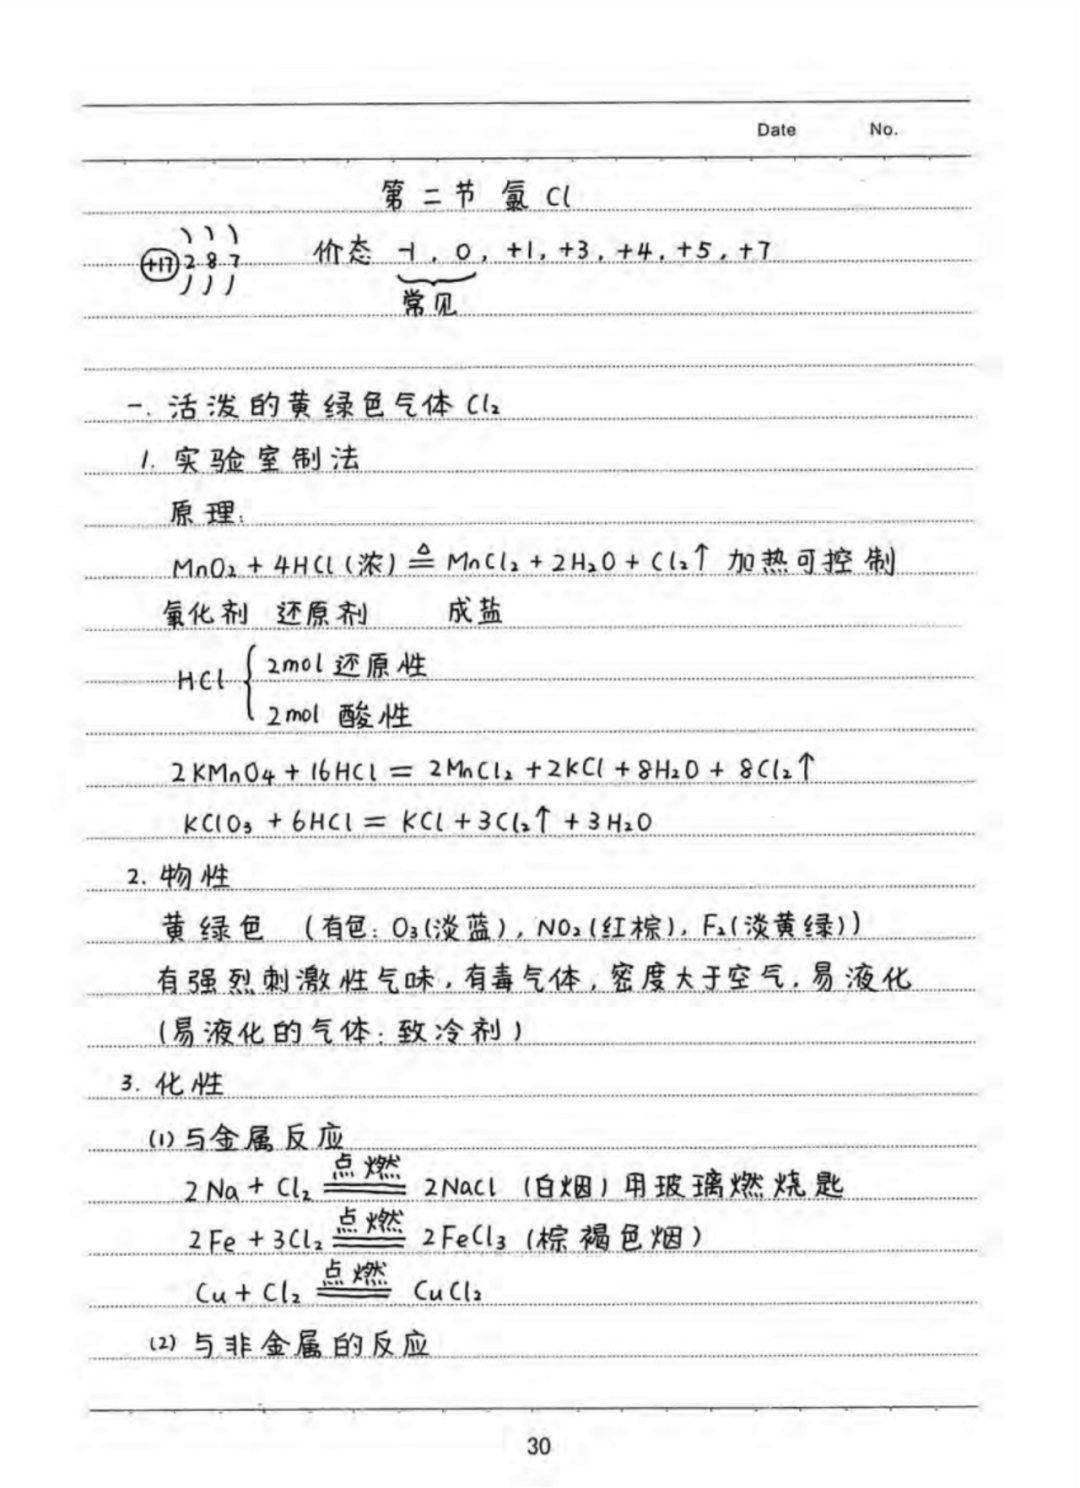 Date No.
第二节 氯 Cl
+17 2 8 7 价态 -1, 0, +1, +3, +4, +5, +7
常见
一. 活泼的黄绿色气体 Cl₂
1. 实验室制法
原理:
MnO₂ + 4HCl (浓) ≜ MnCl₂ + 2H₂O + Cl₂↑ 加热可控制
氧化剂 还原剂 成盐
HCl { 2mol 还原性
2mol 酸性
2KMnO₄ + 16HCl = 2MnCl₂ + 2KCl + 8H₂O + 8Cl₂↑
KClO₃ + 6HCl = KCl + 3Cl₂↑ + 3H₂O
2. 物性
黄绿色 (有色: O₃(淡蓝), NO₂(红棕), F₂(淡黄绿))
有强烈刺激性气味, 有毒气体, 密度大于空气, 易液化
(易液化的气体: 致冷剂)
3. 化性
(1) 与金属反应
点燃
2Na + Cl₂ ═ 2NaCl (白烟) 用玻璃燃烧匙
点燃
2Fe + 3Cl₂ ═ 2FeCl₃ (棕褐色烟)
点燃
Cu + Cl₂ ═ CuCl₂
(2) 与非金属的反应
30